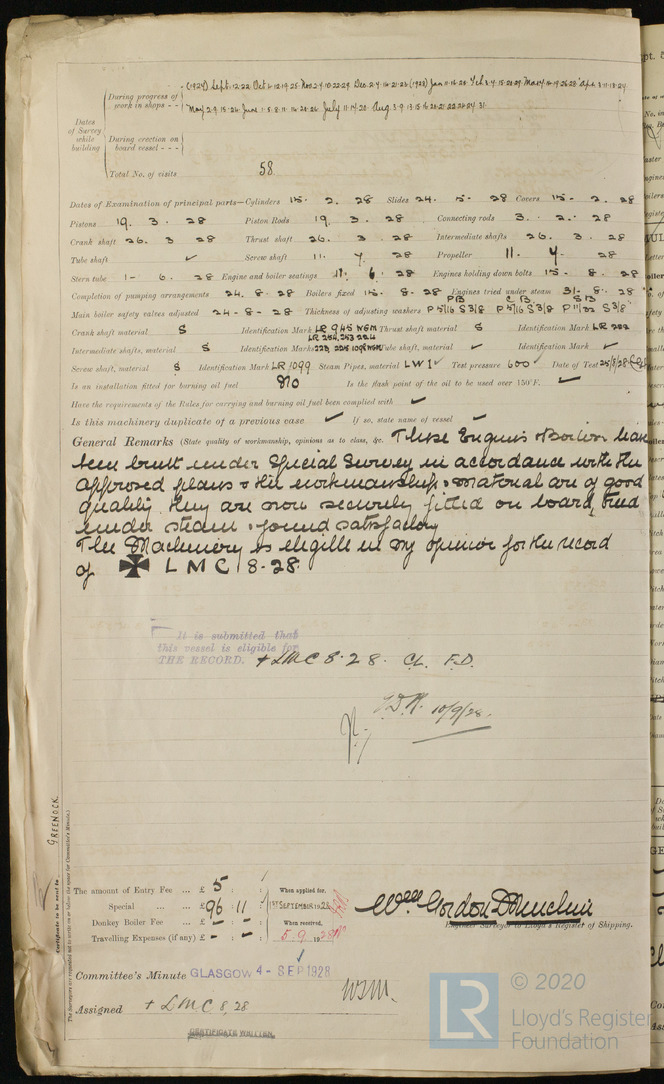 During progress of work in shops - -
Dates of Survey while building
During erection on board vessel - - -
Total No. of visits 58
Dates of Examination of principal parts—Cylinders 15. 2. 28 Slides 24. 5. 28 Covers 15. 2. 28
Pistons 19. 3. 28 Piston Rods 19. 3. 28 Connecting rods 3. 2. 28
Crank shaft 26. 3 28 Thrust shaft 26. 3 28 Intermediate shafts 26. 3. 28
Tube shaft ✓ Screw shaft 11. 4. 28 Propeller 11. 4. 28
Stern tube 1- 6. 28 Engine and boiler seatings 11. 6. 28 Engines holding down bolts 15. 8. 28
Completion of pumping arrangements 24. 8. 28 Boilers fixed 15. 8. 28 Engines tried under steam 31. 8. 28
Main boiler safety valves adjusted 24 - 8 - 28 Thickness of adjusting washers PB P 5/16 S 3/8 CB P 5/16 S 3/8 SB P 11/32 S 3/8
Crank shaft material S Identification Mark LR 945 WGM Thrust shaft material S Identification Mark LR 252
LR 254, 253 224
Intermediate shafts, material S Identification Marks 223, 225 1098 WGM Tube shaft, material ✓ Identification Mark ✓
Screw shaft, material S Identification Mark LR 1099 Steam Pipes, material LW1 ✓ Test pressure 600 ✓ Date of Test 25/8/28
Is an installation fitted for burning oil fuel no Is the flash point of the oil to be used over 150°F. ✓
Have the requirements of the Rules for carrying and burning oil fuel been complied with ✓
Is this machinery duplicate of a previous case ✓ If so, state name of vessel ✓
General Remarks (State quality of workmanship, opinions as to class, &c. These Engines & Boilers have
been built under Special Survey in accordance with the
approved plans & the workmanship & material are of good
quality. They are now securely fitted on board, tried
under steam & found satisfactory
The Machinery is eligible in my opinion for the record
of ✠ LMC 8-28.
It is submitted that
this vessel is eligible for
THE RECORD. + LMC 8.28. CL. F.D.
10/9/28.
GREENOCK.
Certificate to be sent to
The amount of Entry Fee ... £ 5 : :
Special ... ... £ 96 : 11 :
Donkey Boiler Fee ... £ - : - :
Travelling Expenses (if any) £ - : - :
When applied for,
1ST SEPTEMBER 1928
When received,
5.9.1928
Wm Gordon
Engineer Surveyor to Lloyd's Register of Shipping.
Committee's Minute GLASGOW 4 - SEP 1928
Assigned + LMC 8,28
CERTIFICATE WRITTEN
LR
© 2020
Lloyd's Register
Foundation